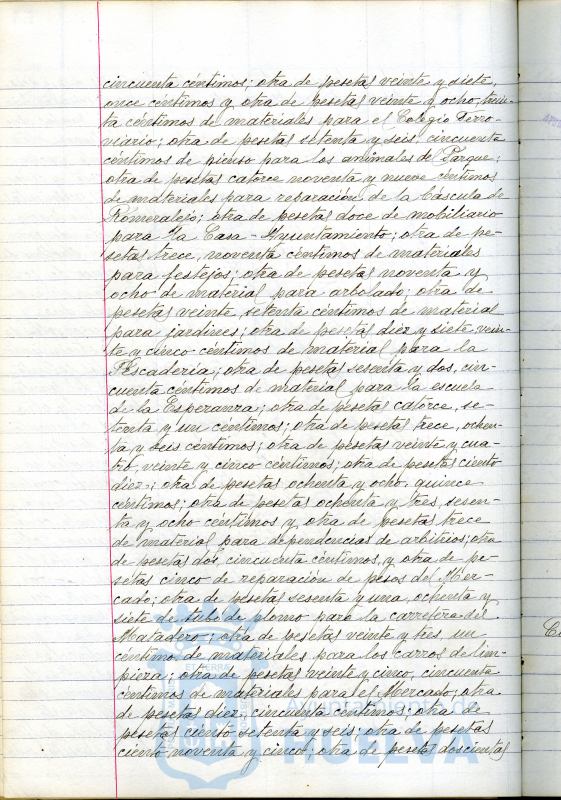 cincuenta céntimos; otra de pesetas veinte y siete,
once céntimos y otra de pesetas veinte y ocho, trein-
ta céntimos de materiales para el Colegio Ferro-
viario; otra de pesetas setenta y seis, cincuenta
céntimos de pienso para los animales del Parque;
otra de pesetas catorce noventa y nueve céntimos
de materiales para reparación de la Báscula de
Romeralejo; otra de pesetas doce de mobiliario
para la Casa-Ayuntamiento; otra de pe-
setas trece, noventa céntimos de materiales
para festejos; otra de pesetas noventa y
ocho de material para arbolado; otra de
pesetas veinte, setenta céntimos de material
para jardines; otra de pesetas diez y siete vein-
te y cinco céntimos de material para la
Pescadería; otra de pesetas sesenta y dos, cin-
cuenta céntimos de material para la escuela
de la Esperanza; otra de pesetas catorce, se-
tenta y un céntimos; otra de pesetas trece, ochen-
ta y seis céntimos; otra de pesetas veinte y cua-
tro, veinte y cinco céntimos; otra de pesetas ciento
diez; otra de pesetas ochenta y ocho, quince
céntimos; otra de pesetas ochenta y tres, sesen-
ta y ocho céntimos y otra de pesetas trece
de material para dependencias de arbitrios; otra
de pesetas dos, cincuenta céntimos, y otra de pe-
setas cinco de reparación de pesos del Mer-
cado; otra de pesetas sesenta y una, ochenta y
siete de tubo de plomo para la carretera del
Matadero; otra de pesetas veinte y tres, un
céntimo, de materiales para los carros de lim-
pieza; otra de pesetas veinte y cinco, cincuenta
céntimos de materiales para el Mercado; otra
de pesetas diez, cincuenta céntimos; otra de
pesetas ciento setenta y seis; otra de pesetas
ciento noventa y cinco; otra de pesetas doscientas
Ayuntamiento de
HUELVA